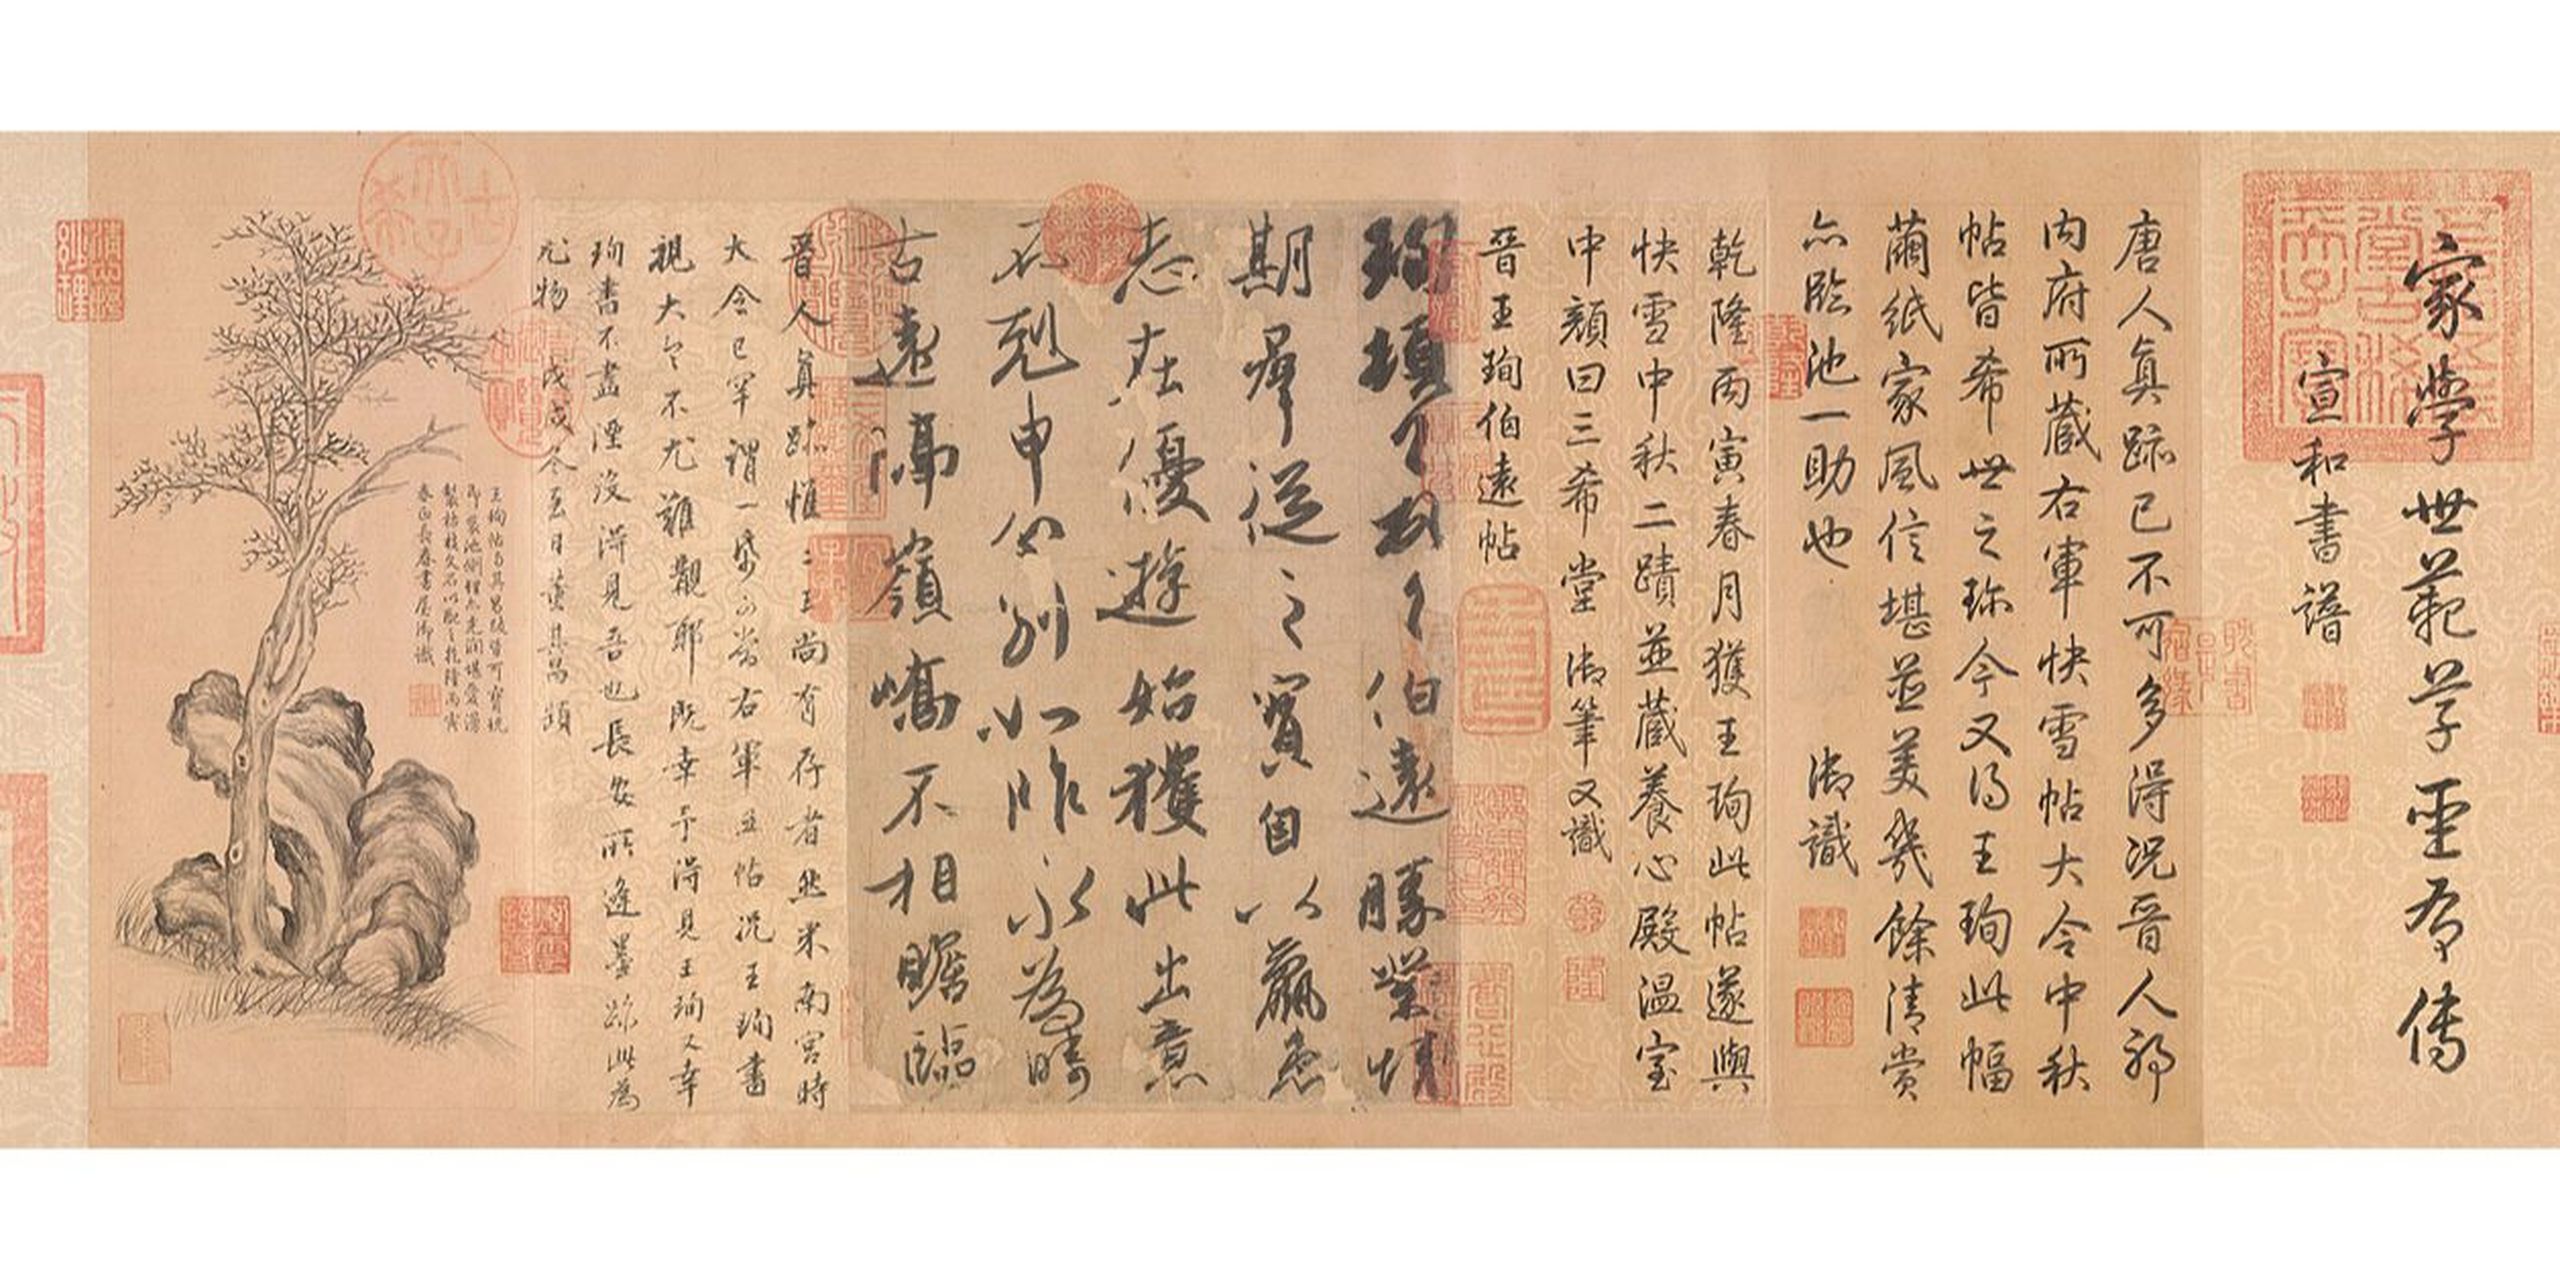 家學世範草聖有傳
宣和書譜
唐人真跡已不可多得況晉人耶
內府所藏右軍快雪帖大令中秋
帖皆希世之珎今又得王珣此幅
繭紙家風信堪並美幾餘清賞
亦臨池一助也 御識
乾隆丙寅春月獲王珣此帖遂與
快雪中秋二蹟並藏養心殿溫室
中顏曰三希堂 御筆又識
晉王珣伯遠帖
珣頓首頓首伯遠勝業情
期群從之寶自以羸患
志在優遊始獲此出意
不剋申分別如昨永為疇
古遠隔嶺嶠不相瞻臨
晉人真跡惟二王尚有存者然米南宮時
大令已罕謂一紙可當右軍五帖況王珣書
視大令不尤難覯耶既幸予得見王珣又幸
珣書不盡湮沒得見吾也長安所逢墨跡此為
尤物 戊戌冬至日董其昌題
王珣帖與其昌跋皆可寶玩
即裝池側理亦光潤堪愛漫
製枯枝文石以配之乾隆丙寅
春正長春書屋御識